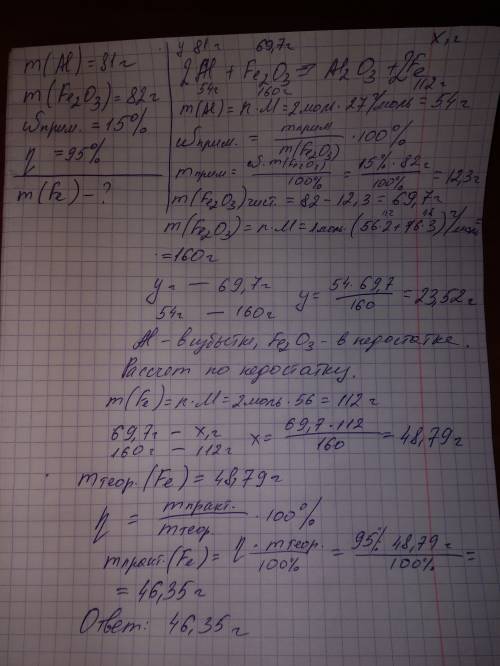 m(Al) = 81г
m(Fe2O3) = 82г
ωприм. = 15%
η = 95%
m(Fe) - ?
y 81г 69,7г x, г
2Al + Fe2O3 = Al2O3 + 2Fe
54г 160г 112г
m(Al) = n·M = 2моль·27г/моль = 54г
ωприм. = mприм/m(Fe2O3) · 100%
mприм = ω·m(Fe2O3)/100% = 15%·82г/100% = 12,3г
m(Fe2O3)чист. = 82 - 12,3 = 69,7г
m(Fe2O3) = n·M = 1моль·(56·2+16·3)г/моль =
= 160г
yг — 69,7г
54г — 160г
y = 54·69,7/160 = 23,52г
Al - в избытке, Fe2O3 - в недостатке.
Рассчет по недостатку.
m(Fe) = n·M = 2моль·56 = 112г
69,7г — x, г
160г — 112г
x = 69,7·112/160 = 48,79г
mтеор.(Fe) = 48,79г
η = mпракт./mтеор. · 100%
mпракт.(Fe) = η·mтеор./100% = 95%·48,79г/100% =
= 46,35г
Ответ: 46,35г